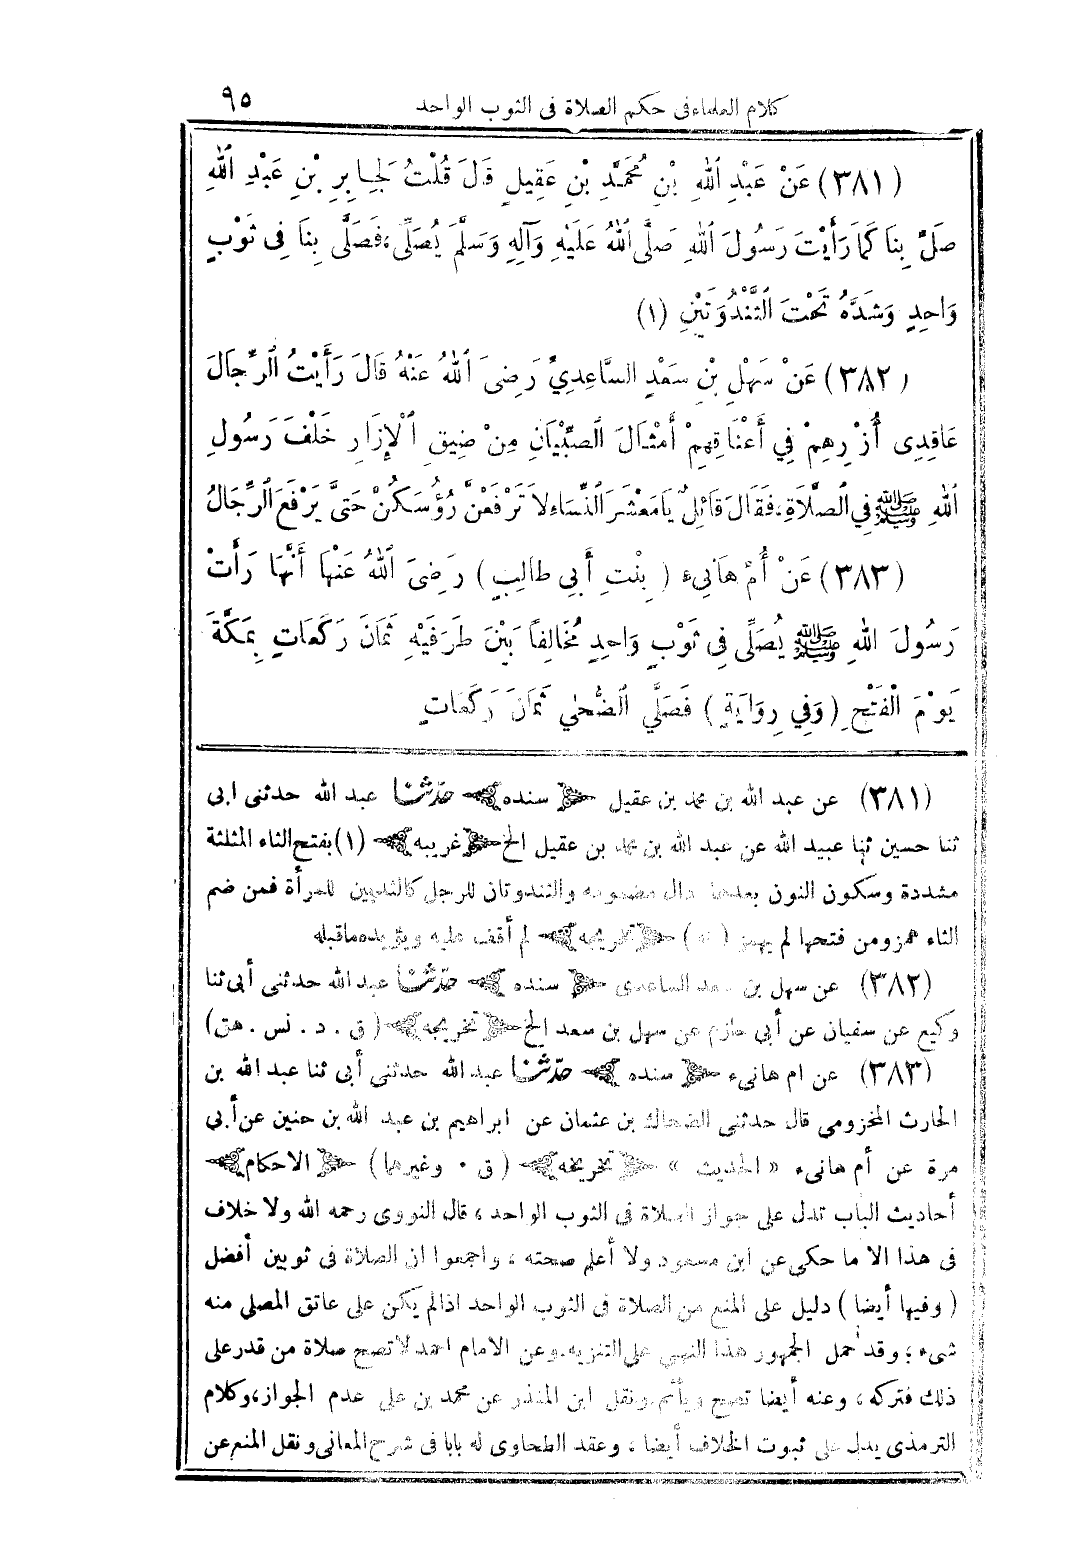 كلام العلماء فى حكم الصلاة فى الثوب الواحد ٩٥
(٣٨١) عَنْ عَبْدِ اللهِ بْنِ مُحَمَّدِ بْنِ عَقِيلٍ قَالَ قُلْتُ لِجَابِرِ بْنِ عَبْدِ اللهِ
صَلِّ بِنَا كَمَا رَأَيْتَ رَسُولَ اللهِ صَلَّى اللهُ عَلَيْهِ وَآلِهِ وَسَلَّمَ يُصَلِّى، فَصَلَّى بِنَا فِى ثَوْبٍ
وَاحِدٍ وَشَدَّهُ تَحْتَ الثَّنْدُوَتَيْنِ (١)
(٣٨٢) عَنْ سَهْلِ بْنِ سَعْدٍ السَّاعِدِيِّ رَضِىَ اللهُ عَنْهُ قَالَ رَأَيْتُ الرِّجَالَ
عَاقِدِى أُزْرِهِمْ فِي أَعْنَاقِهِمْ أَمْثَالَ الصِّبْيَانِ مِنْ ضِيقِ الْإِزَارِ خَلْفَ رَسُولِ
اللهِ ﷺ فِي الصَّلَاةِ، فَقَالَ قَائِلٌ يَا مَعْشَرَ النِّسَاءِ لَا تَرْفَعْنَ رُؤُسَكُنَّ حَتَّى يَرْفَعَ الرِّجَالُ
(٣٨٣) عَنْ أُمِّ هَانِىءٍ (بِنْتِ أَبِى طَالِبٍ) رَضِىَ اللهُ عَنْهَا أَنَّهَا رَأَتْ
رَسُولَ اللهِ ﷺ يُصَلِّى فِى ثَوْبٍ وَاحِدٍ مُخَالِفًا بَيْنَ طَرَفَيْهِ ثَمَانَ رَكَعَاتٍ بِمَكَّةَ
يَوْمَ الْفَتْحِ (وَفِي رِوَايَةٍ) فَصَلَّي الضُّحٰى ثَمَانَ رَكَعَاتٍ
(٣٨١) عن عبد الله بن محمد بن عقيل ﴿سنده﴾ حدّثنا عبد الله حدثنى ابى
ثنا حسين ثنا عبيد الله عن عبد الله بن محمد بن عقيل الخ ﴿غريبه﴾ (١) بفتح الثاء المثلثة
مشددة وسكون النون بعدها دال مضمومه والثندوتان للرجل كالثديين للمرأة فمن ضم
الثاء همز ومن فتحها لم يهمز (نه) ﴿تخريجه﴾ لم أقف عليه ويؤيده ماقبله
(٣٨٢) عن سهل بن سعد الساعدى ﴿سنده﴾ حدّثنا عبد الله حدثنى أبى ثنا
وكيع عن سفيان عن أبى حازم عن سهل بن سعد الخ ﴿تخريجه﴾ (ق . د . نس . هق)
(٣٨٣) عن ام هانىء ﴿سنده﴾ حدّثنا عبد الله حدثنى أبى ثنا عبد الله بن
الحارث المخزومى قال حدثنى الضحاك بن عثمان عن ابراهيم بن عبد الله بن حنين عن أبى
مرة عن أم هانىء « الحديث » ﴿تخريجه﴾ (ق . وغيرها) ﴿الاحكام﴾
أحاديث الباب تدل على جواز الصلاة فى الثوب الواحد ، قال النووى رحمه الله ولا خلاف
فى هذا الا ما حكى عن ابن مسعود ولا أعلم صحته ، واجمعوا ان الصلاة فى ثوبين أفضل
(وفيها أيضا) دليل على المنع من الصلاة فى الثوب الواحد اذا لم يكن على عاتق المصلى منه
شىء ؛ وقد حمل الجمهور هذا النهى على التنزيه، وعن الامام احمد لاتصح صلاة من قدر على
ذلك فتركه ، وعنه أيضا تصح ويأثم ونقل ابن المنذر عن محمد بن على عدم الجواز، وكلام
الترمذى يدل على ثبوت الخلاف أيضا ، وعقد الطحاوى له بابا فى شرح المعانى ونقل المنع عن